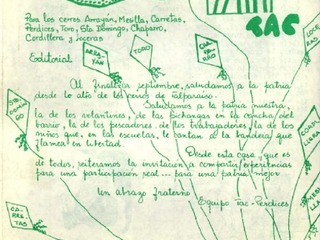 Para los cerros Arrayán, Mesilla, Carretas,
Perdices, Toro, Sto. Domingo, Chaparro,
Cordillera y Loceras
TAC
Editorial
ARRAYAN
TORO
CHAPARRO
STO. DOMINGO
CORDILLERA
CARRETAS
Al finalizar septiembre, saludamos a la patria
desde lo alto de los cerros de Valparaíso.
Saludamos a la patria nuestra,
la de los volantines, de las pichangas en la cancha del
barrio, la de los pescadores, de los trabajadores, la de los
niños que, en las escuelas, le cantan a la bandera que
flamea en libertad.
Desde esta casa, que es
de todos, reiteramos la invitación a compartir experiencias
para una participación real... para una patria mejor.
Un abrazo fraterno,
Equipo Tac-Perdices